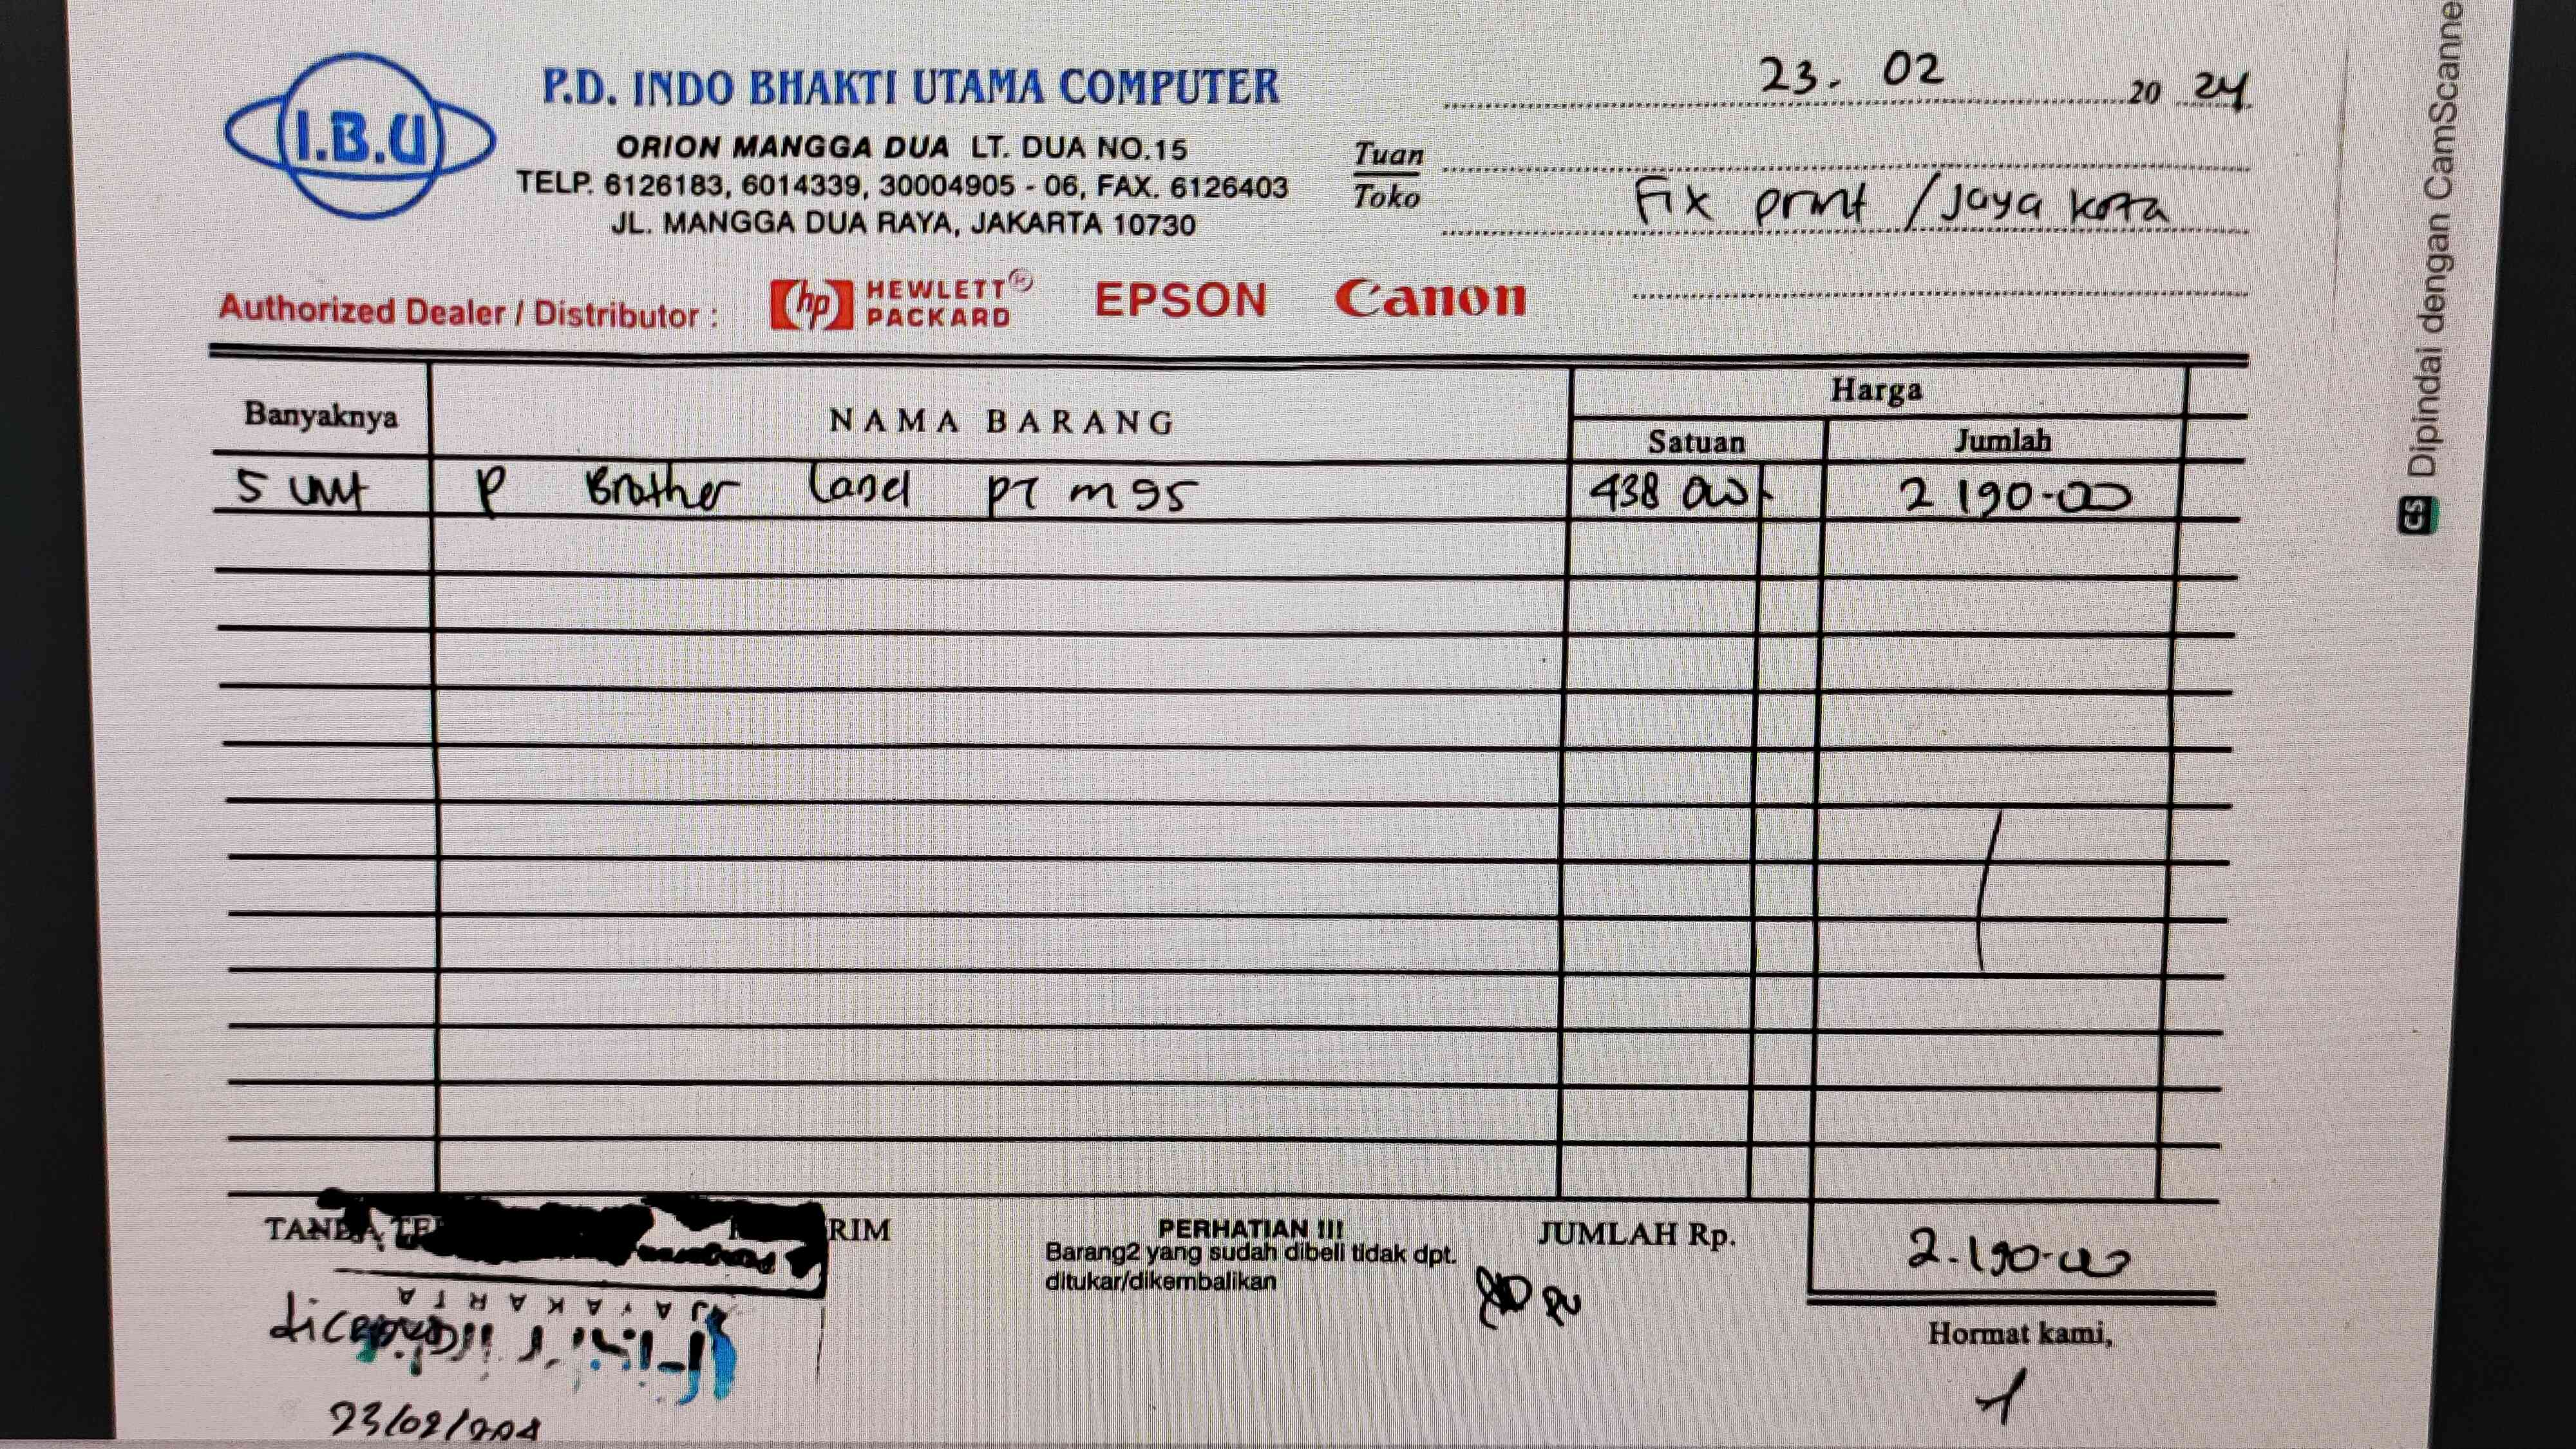 I.B.U
P.D. INDO BHAKTI UTAMA COMPUTER
ORION MANGGA DUA LT. DUA NO.15
TELP. 6126183, 6014339, 30004905 - 06, FAX. 6126403
JL. MANGGA DUA RAYA, JAKARTA 10730
23. 02 20 24
Tuan
Toko
Fix print / Jaya kota
Authorized Dealer / Distributor : hp HEWLETT PACKARD EPSON Canon
Banyaknya NAMA BARANG Harga
Satuan Jumlah
5 unit P Brother Label PT M 95 438 000 2 190.000
RIM
PERHATIAN !!!
Barang2 yang sudah dibeli tidak dpt.
ditukar/dikembalikan
JUMLAH Rp. 2.190.000
JAYAKARTA
23/02/2024
Hormat kami,
Dipindai dengan CamScanne
CS